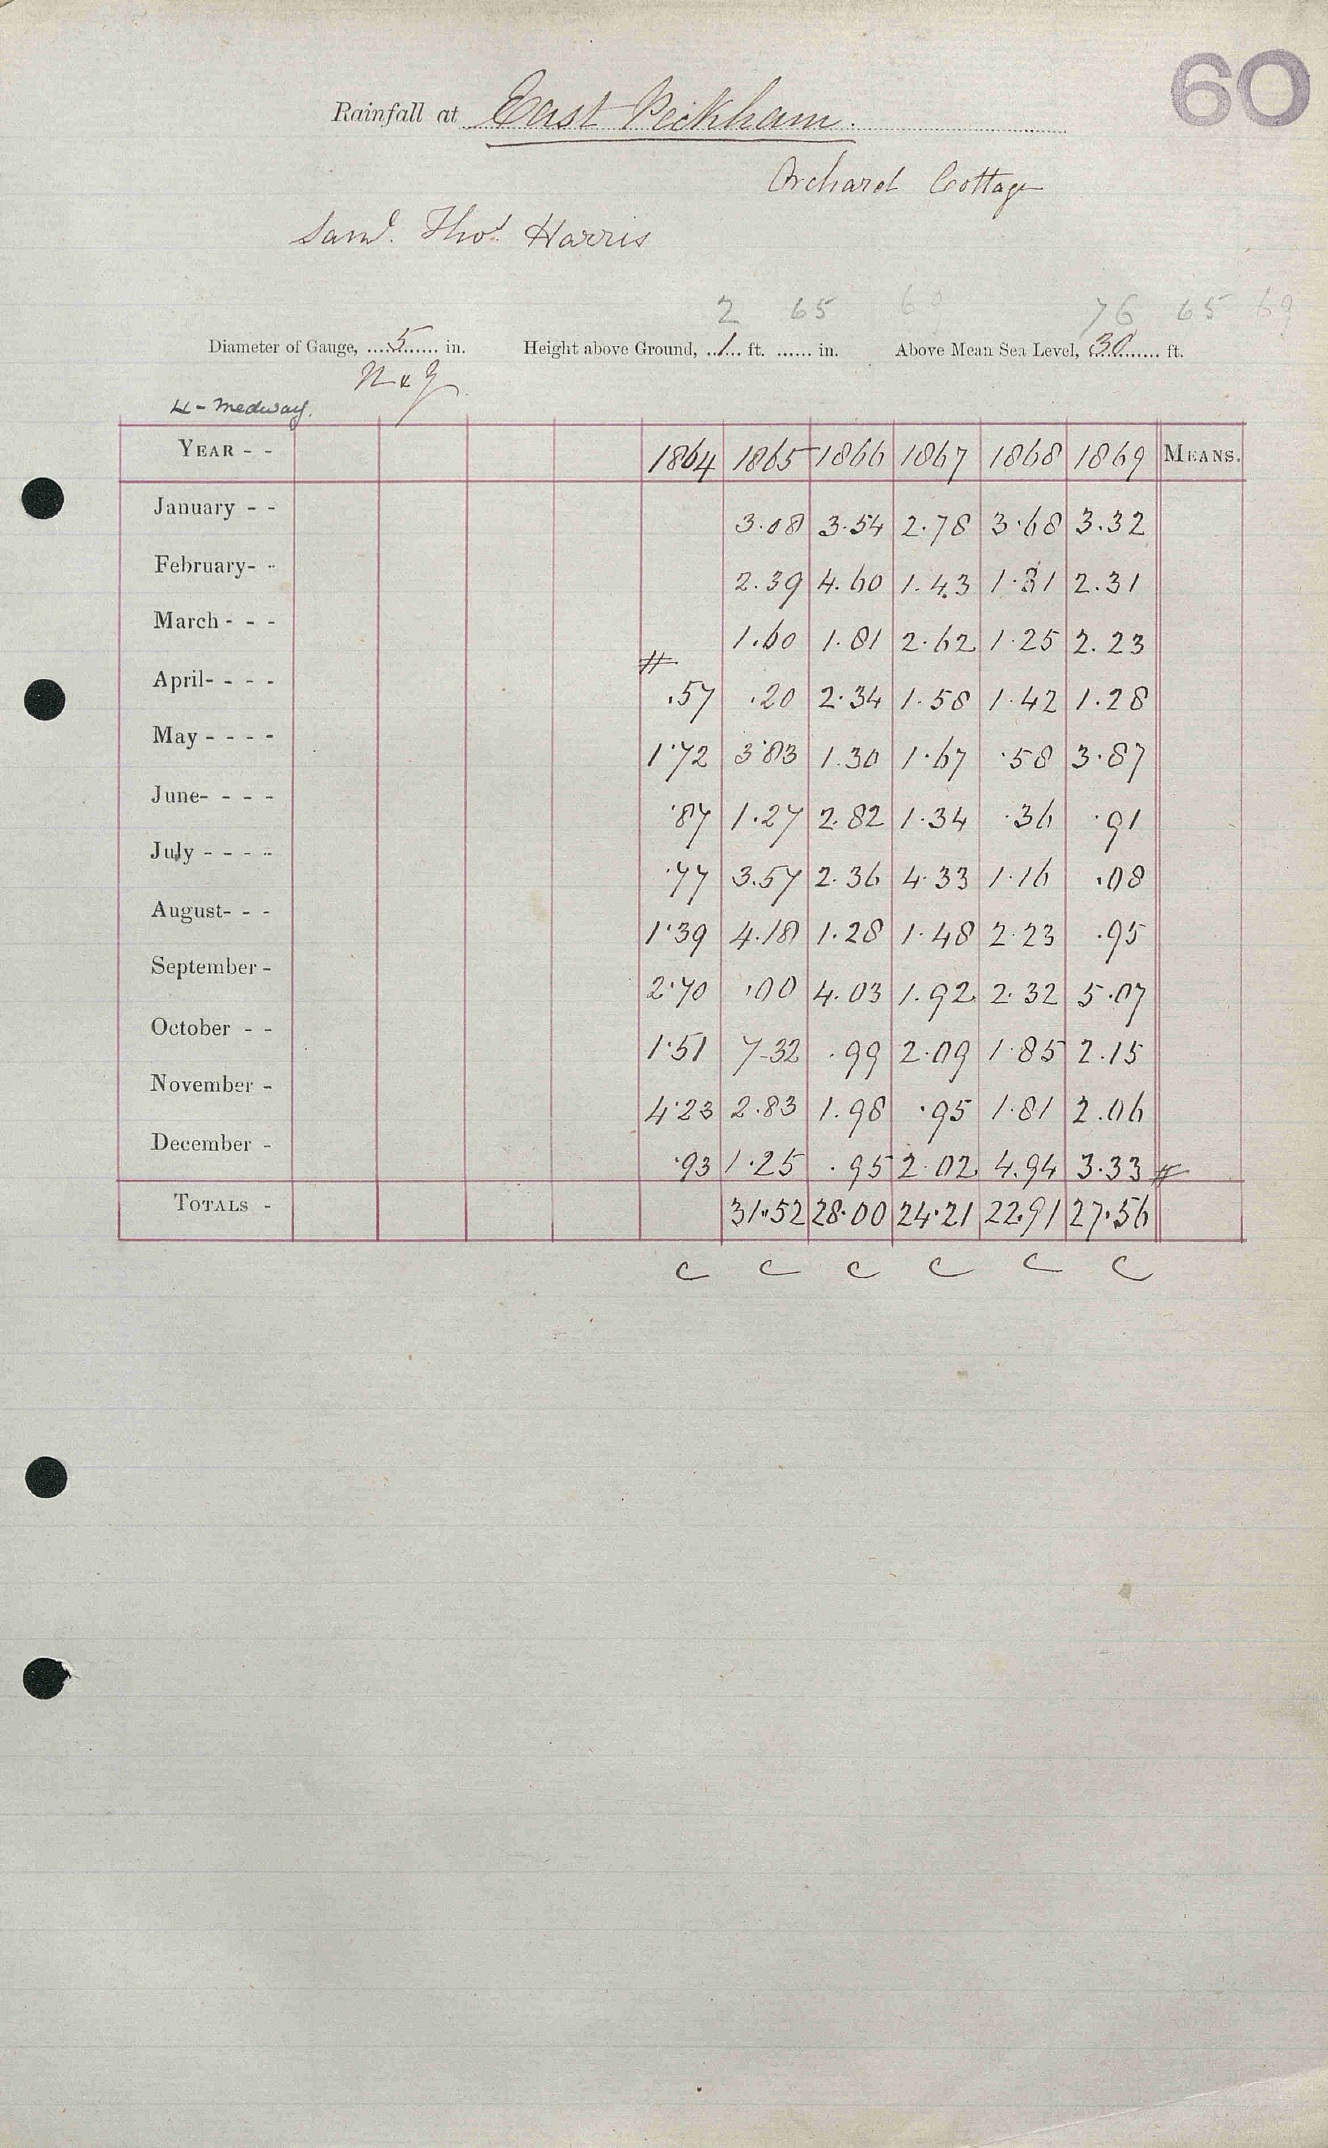 60
Rainfall at East Peckham.
Orchard Cottage
Saml. Thos. Harris
2 65 69 76 65 69
Diameter of Gauge, 5 in. Height above Ground, 1 ft. ...... in. Above Mean Sea Level, 30 ft.
N & Z
4 - Medway.
YEAR - - 1864 1865 1866 1867 1868 1869 MEANS.
January - - 3.08 3.54 2.78 3.68 3.32
February- - 2.39 4.60 1.43 1.31 2.31
March - - - 1.60 1.81 2.62 1.25 2.23
April- - - - # .57 .20 2.34 1.58 1.42 1.28
May - - - - 1.72 3.83 1.30 1.67 .58 3.87
June- - - - .87 1.27 2.82 1.34 .36 .91
July - - - - .77 3.57 2.36 4.33 1.16 .08
August- - - 1.39 4.18 1.28 1.48 2.23 .95
September - 2.70 .00 4.03 1.92 2.32 5.07
October - - 1.51 7.32 .99 2.09 1.85 2.15
November - 4.23 2.83 1.98 .95 1.81 2.06
December - .93 1.25 .95 2.02 4.94 3.33 #
TOTALS - 31.52 28.00 24.21 22.91 27.56
C C C C C C